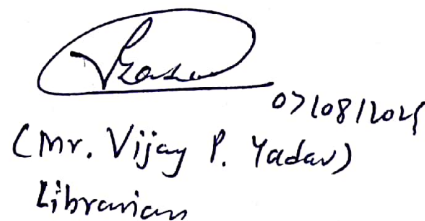 07/08/2025
(Mr. Vijay P. Yadav)
Librarian